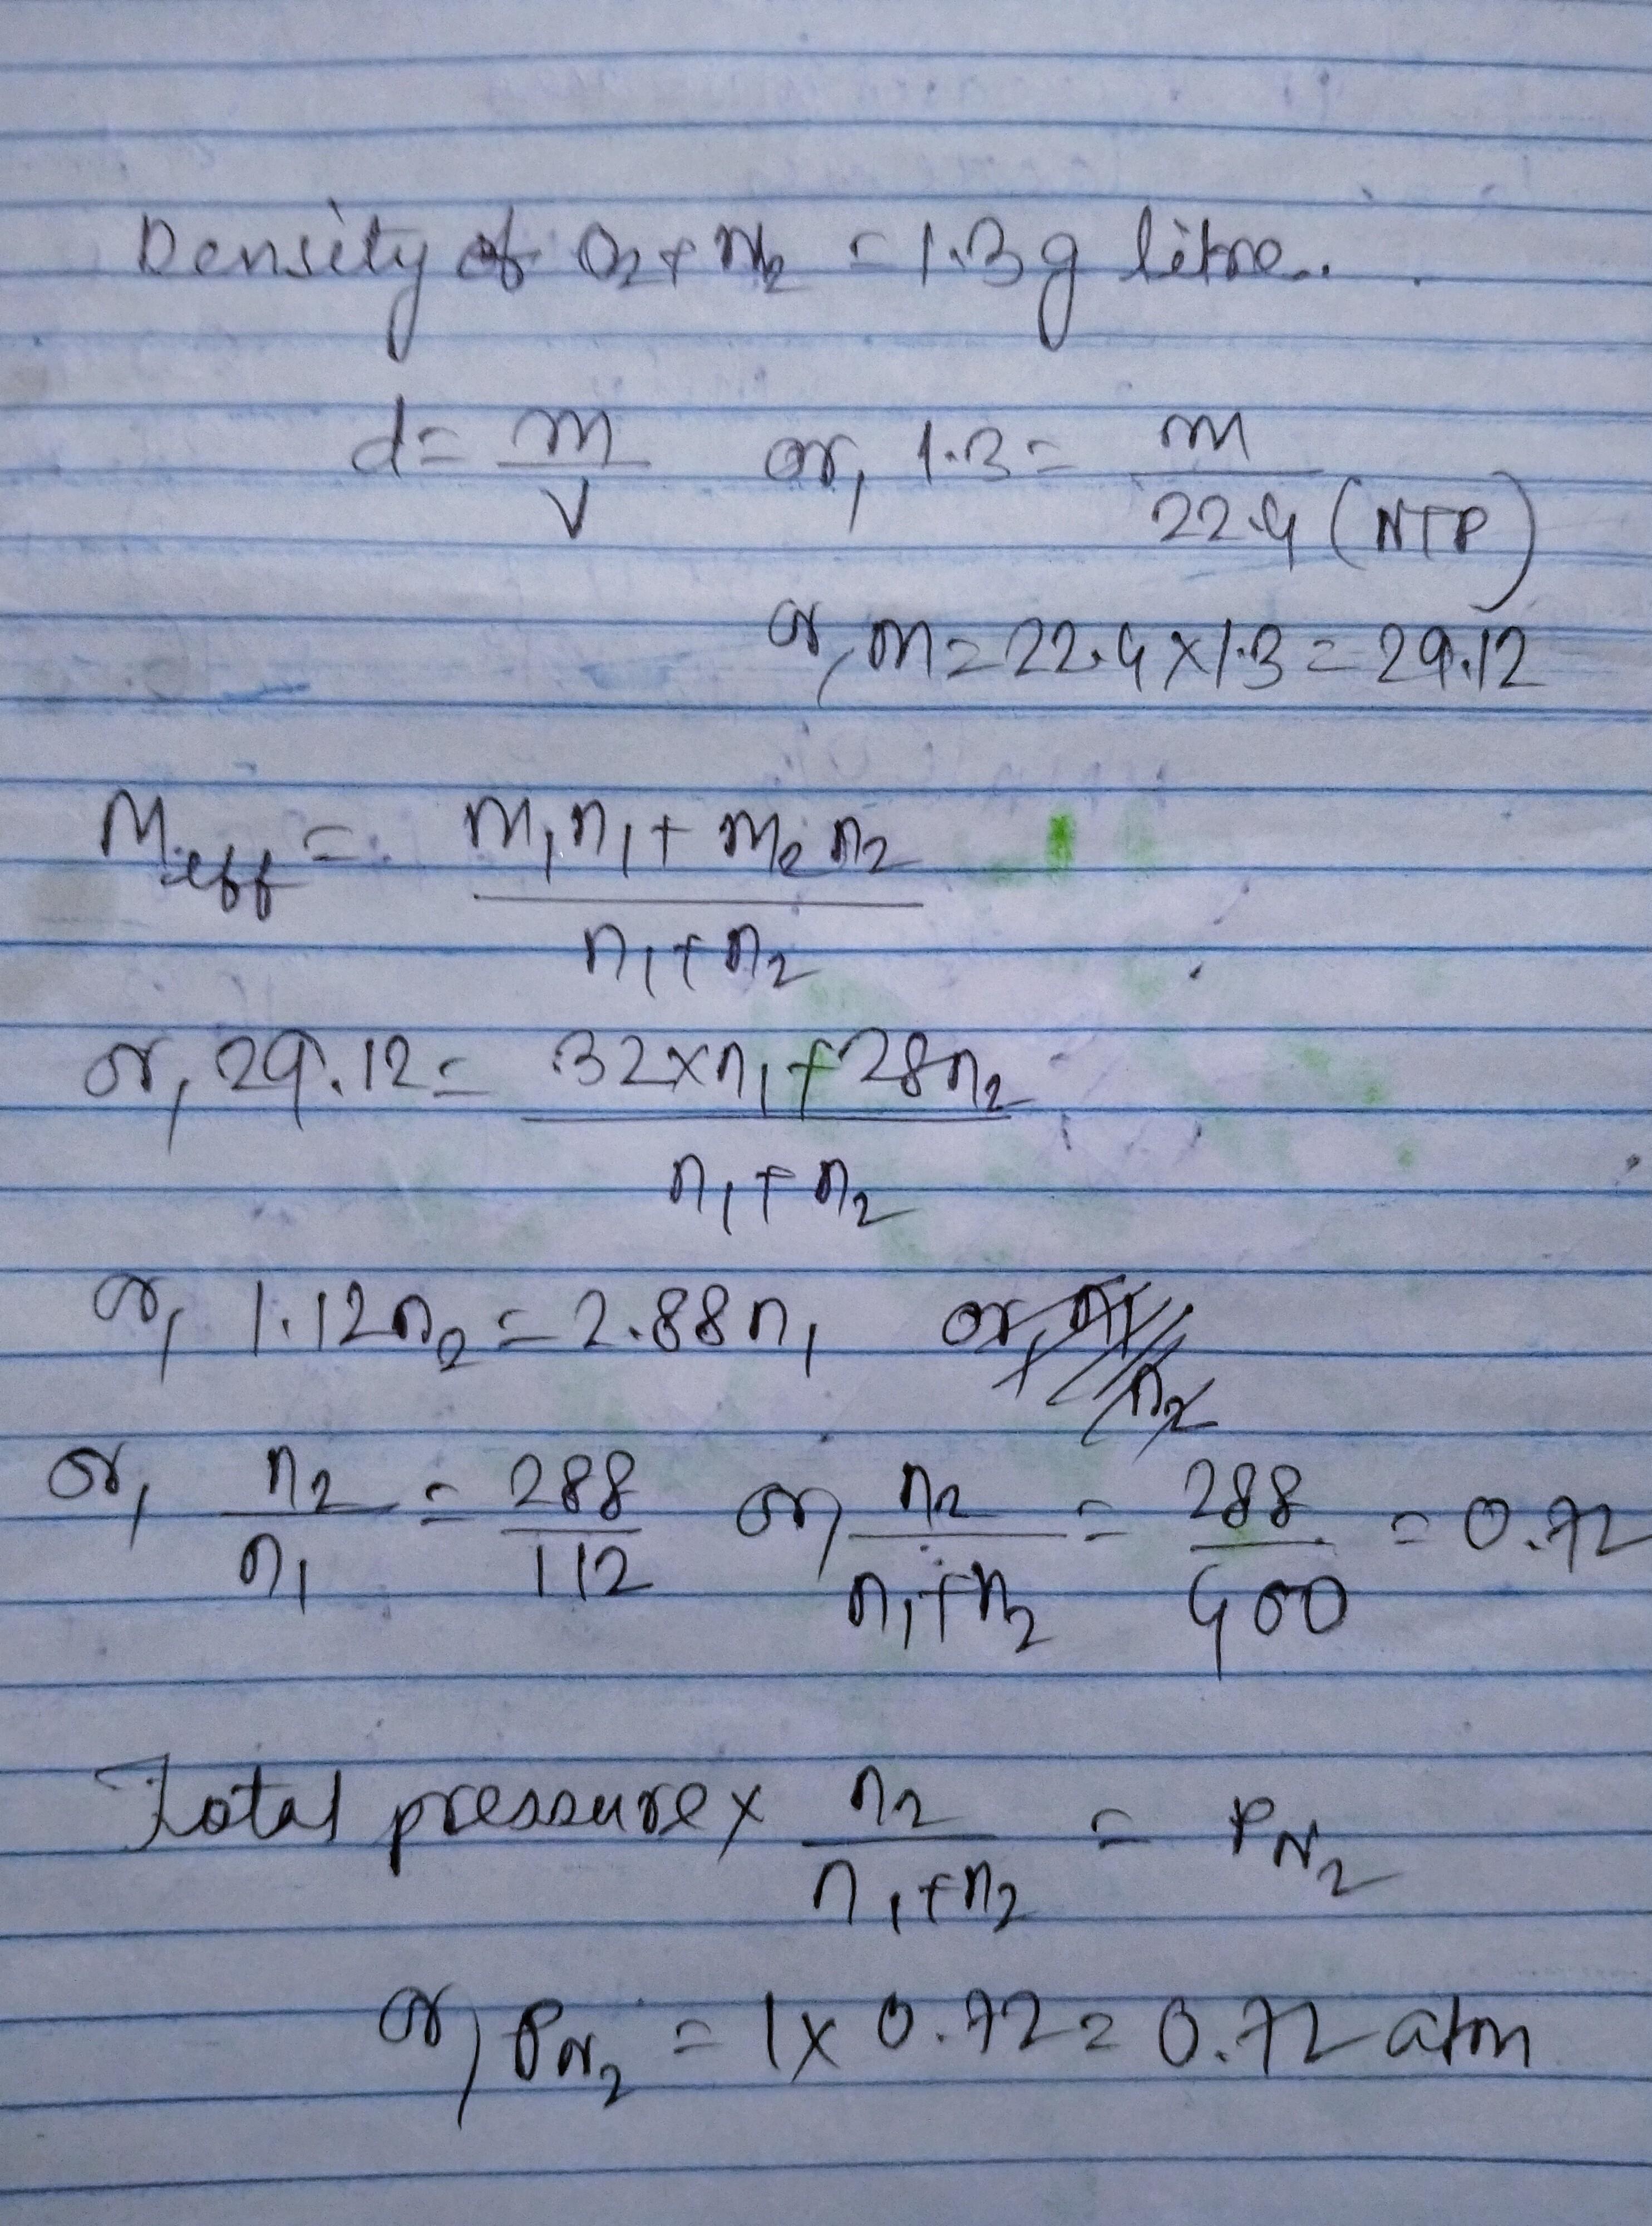 Density of O2 + N2 = 1.3 g litre.
d = m/V or, 1.3 = m/22.4 (NTP)
or, m = 22.4 x 1.3 = 29.12
M eff = m1n1 + m2n2 / n1 + n2
or, 29.12 = 32 x n1 + 28n2 / n1 + n2
or, 1.12n2 = 2.88n1 or, n1/n2
or, n2/n1 = 288/112 or, n2/n1+n2 = 288/400 = 0.72
Total pressure x n2/n1+n2 = PN2
or, PN2 = 1 x 0.72 = 0.72 atm